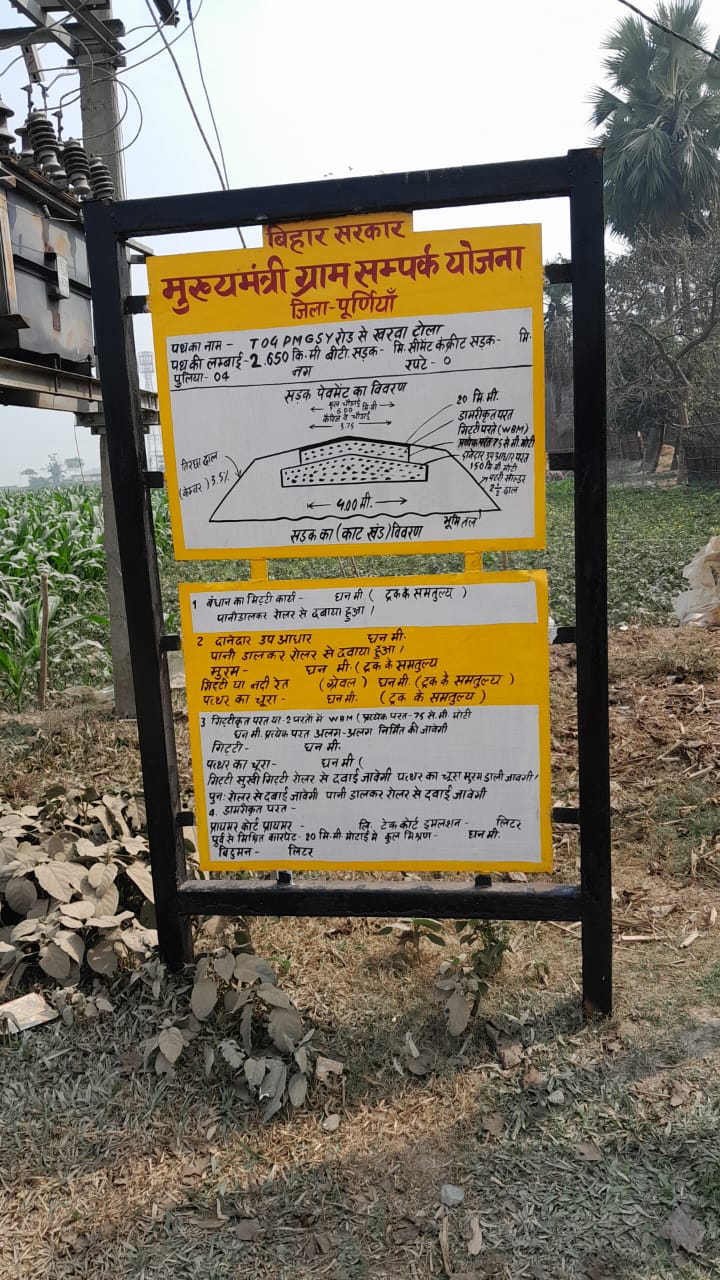 बिहार सरकार
मुख्यमंत्री ग्राम सम्पर्क योजना
जिला-पूर्णियाँ
पथ का नाम - T04 PMGSY रोड से खरवा टोला
पथ की लम्बाई- 2.650 कि.मी बीटी. सड़क- मि. सीमेंट कंक्रीट सड़क- मि.
पुलिया- 04 नग रपटे - 0
सड़क पेवमेंट का विवरण
कुल चौड़ाई
6.00 मि.मी
कैरिज वे चौड़ाई
3.75
20 मि.मी.
डामरीकृत परत
गिट्टी परते (WBM)
प्रत्येक परत 75 से.मी. मोटी
दानेदार उप आधार परत
150 मि.मी. मोटी
पटरी सोल्डर
2½ ढाल
तिरछा ढाल
(केम्बर) 3.5%
4.00 मी.
भूमि तल
सड़क का (काट खंड) विवरण
1 बंधान का मिट्टी कार्य - घन मी ( ट्रक के समतुल्य )
पानी डालकर रोलर से दबाया हुआ ।
2 दानेदार उप आधार घन मी.
पानी डालकर रोलर से दवाया हुआ ।
मुरम - घन मी. ( ट्रक के समतुल्य
गिट्टी या नदी रेत (ग्रेवल) घन मी. (ट्रक के समतुल्य)
पत्थर का चूरा - घन मी. (ट्रक के समतुल्य )
3 गिट्टीकृत परत या-2 परतों में WBM (प्रत्येक परत-75 से.मी. मोटी
घन मी. प्रत्येक परत अलग-अलग निर्मित की जावेगी
गिट्टी- घन मी.
पत्थर का चूरा- घन मी (
गिट्टी सुखी गिट्टी रोलर से दवाई जावेगी पत्थर का चूरा मुरम डाली जावगी।
पुनः रोलर से दवाई जावेगी पानी डालकर रोलर से दवाई जावेगी
4. डामरीकृत परत -
प्रायमर कोर्ट प्रायमर - लि. टेक कोर्ट इमलशन - लिटर
पूर्व से मिश्रित कारपेट- 20 मि.मी. मोटाई में कूल मिश्रण - घन मी.
बिटुमन - लिटर